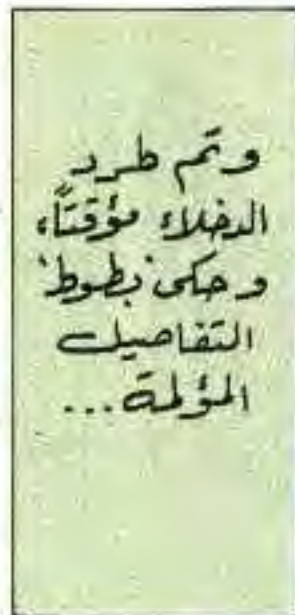 وتم طرد
الدخلاء مؤقتاً،
وحكى 'بطوط'
التفاصيل
المؤلمة...